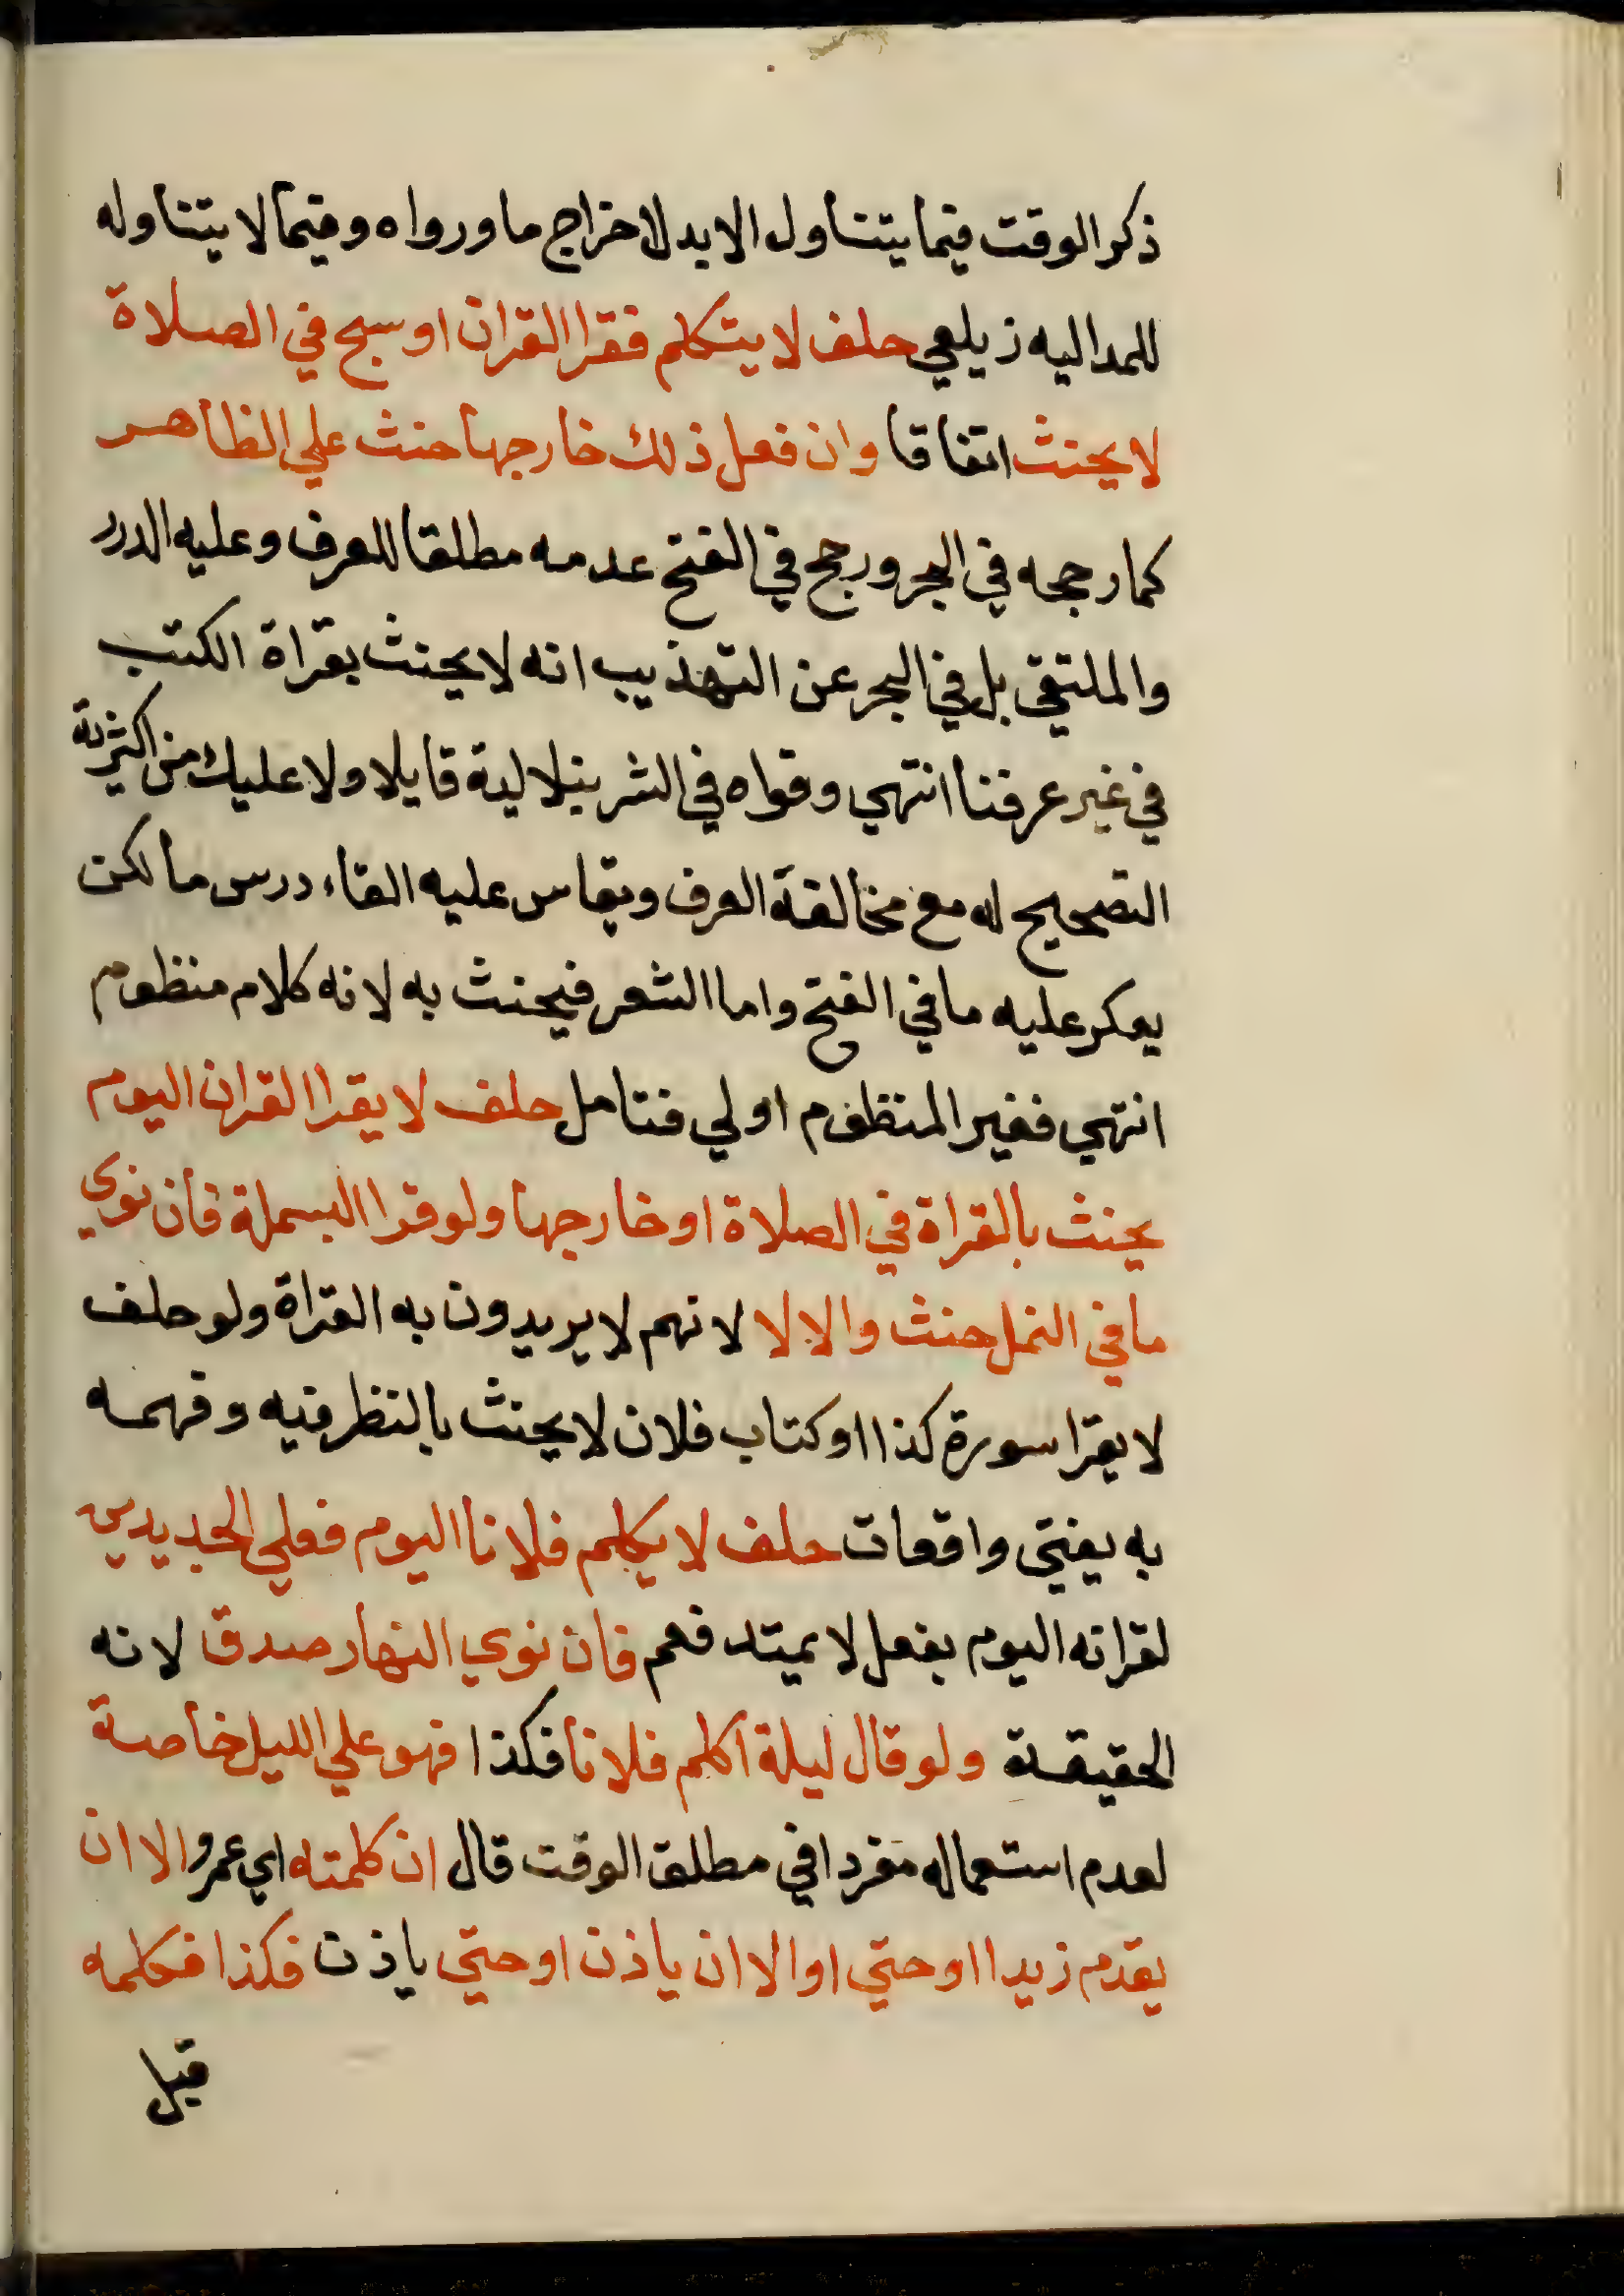 ذكر الوقت فيما يتناول الابد لاخراج ما وروراه وفيما لا يتناوله
للمد اليه زيلعي حلف لا يتكلم فقرا القران او سبح في الصلاة
لا يحنث اتفاقا وان فعل ذلك خارجها حنث علي الظاهر
كما رجحه في البحر ورجح في الفتح عدمه مطلقا للعرف وعليه الدرر
والملتقي بل في البحر عن التهذيب انه لا يحنث بقراة الكتب
في غير عرفنا انتهي وقواه في الشرنبلالية قايلا ولا عليك من اكثرية
التصحيح له مع مخالفة العرف ويقاس عليه القاء درس ما لكن
يعكر عليه ما في الفتح واما الشعر فيحنث به لانه كلام منظوم
انتهي فغير المنظوم اولي فتامل حلف لا يقرا القران اليوم
يحنث بالقراة في الصلاة او خارجها ولو قرا البسملة فان نوي
ما في النمل حنث والا لا لانهم لا يريدون به القراة ولو حلف
لا يقرا سورة كذا او كتاب فلان لا يحنث بالنظر فيه وفهمه
به يفتي واقعات حلف لا يكلم فلانا اليوم فعلي الجديدين
لقرانه اليوم بفعل لا يمتد فعم فان نوي النهار صدق لانه
الحقيقة ولو قال ليلة اكلم فلانا فكذا فهو علي الليل خاصة
لعدم استعماله مفردا في مطلق الوقت قال ان كلمته اي عمرو الا ان
يقدم زيدا او حتي او الا ان ياذن او حتي ياذن فكذا فكلمه
قبل